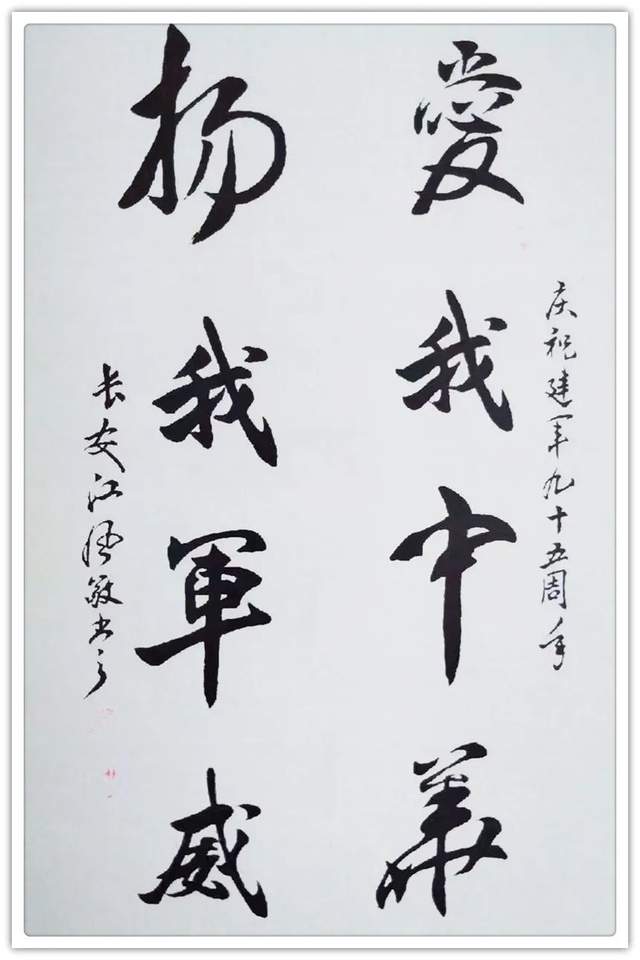 庆祝建军九十五周年
愛我中華
揚我軍威
长安江敏书之